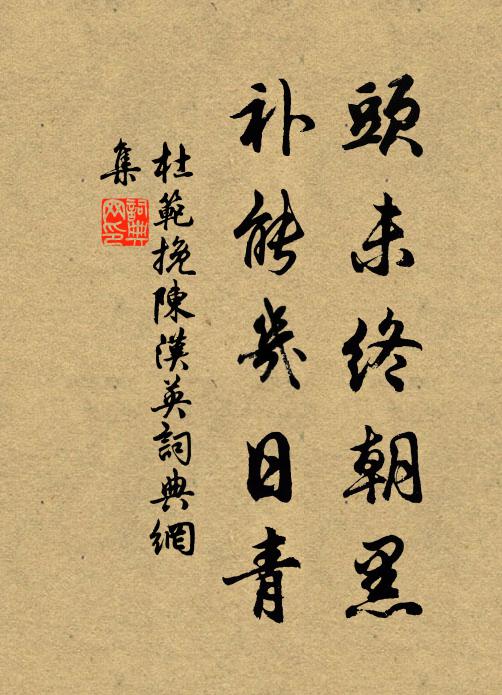 頭未終朝黑
补能幾日青
杜範挽陳漢英詞典網
集
詞典
网印